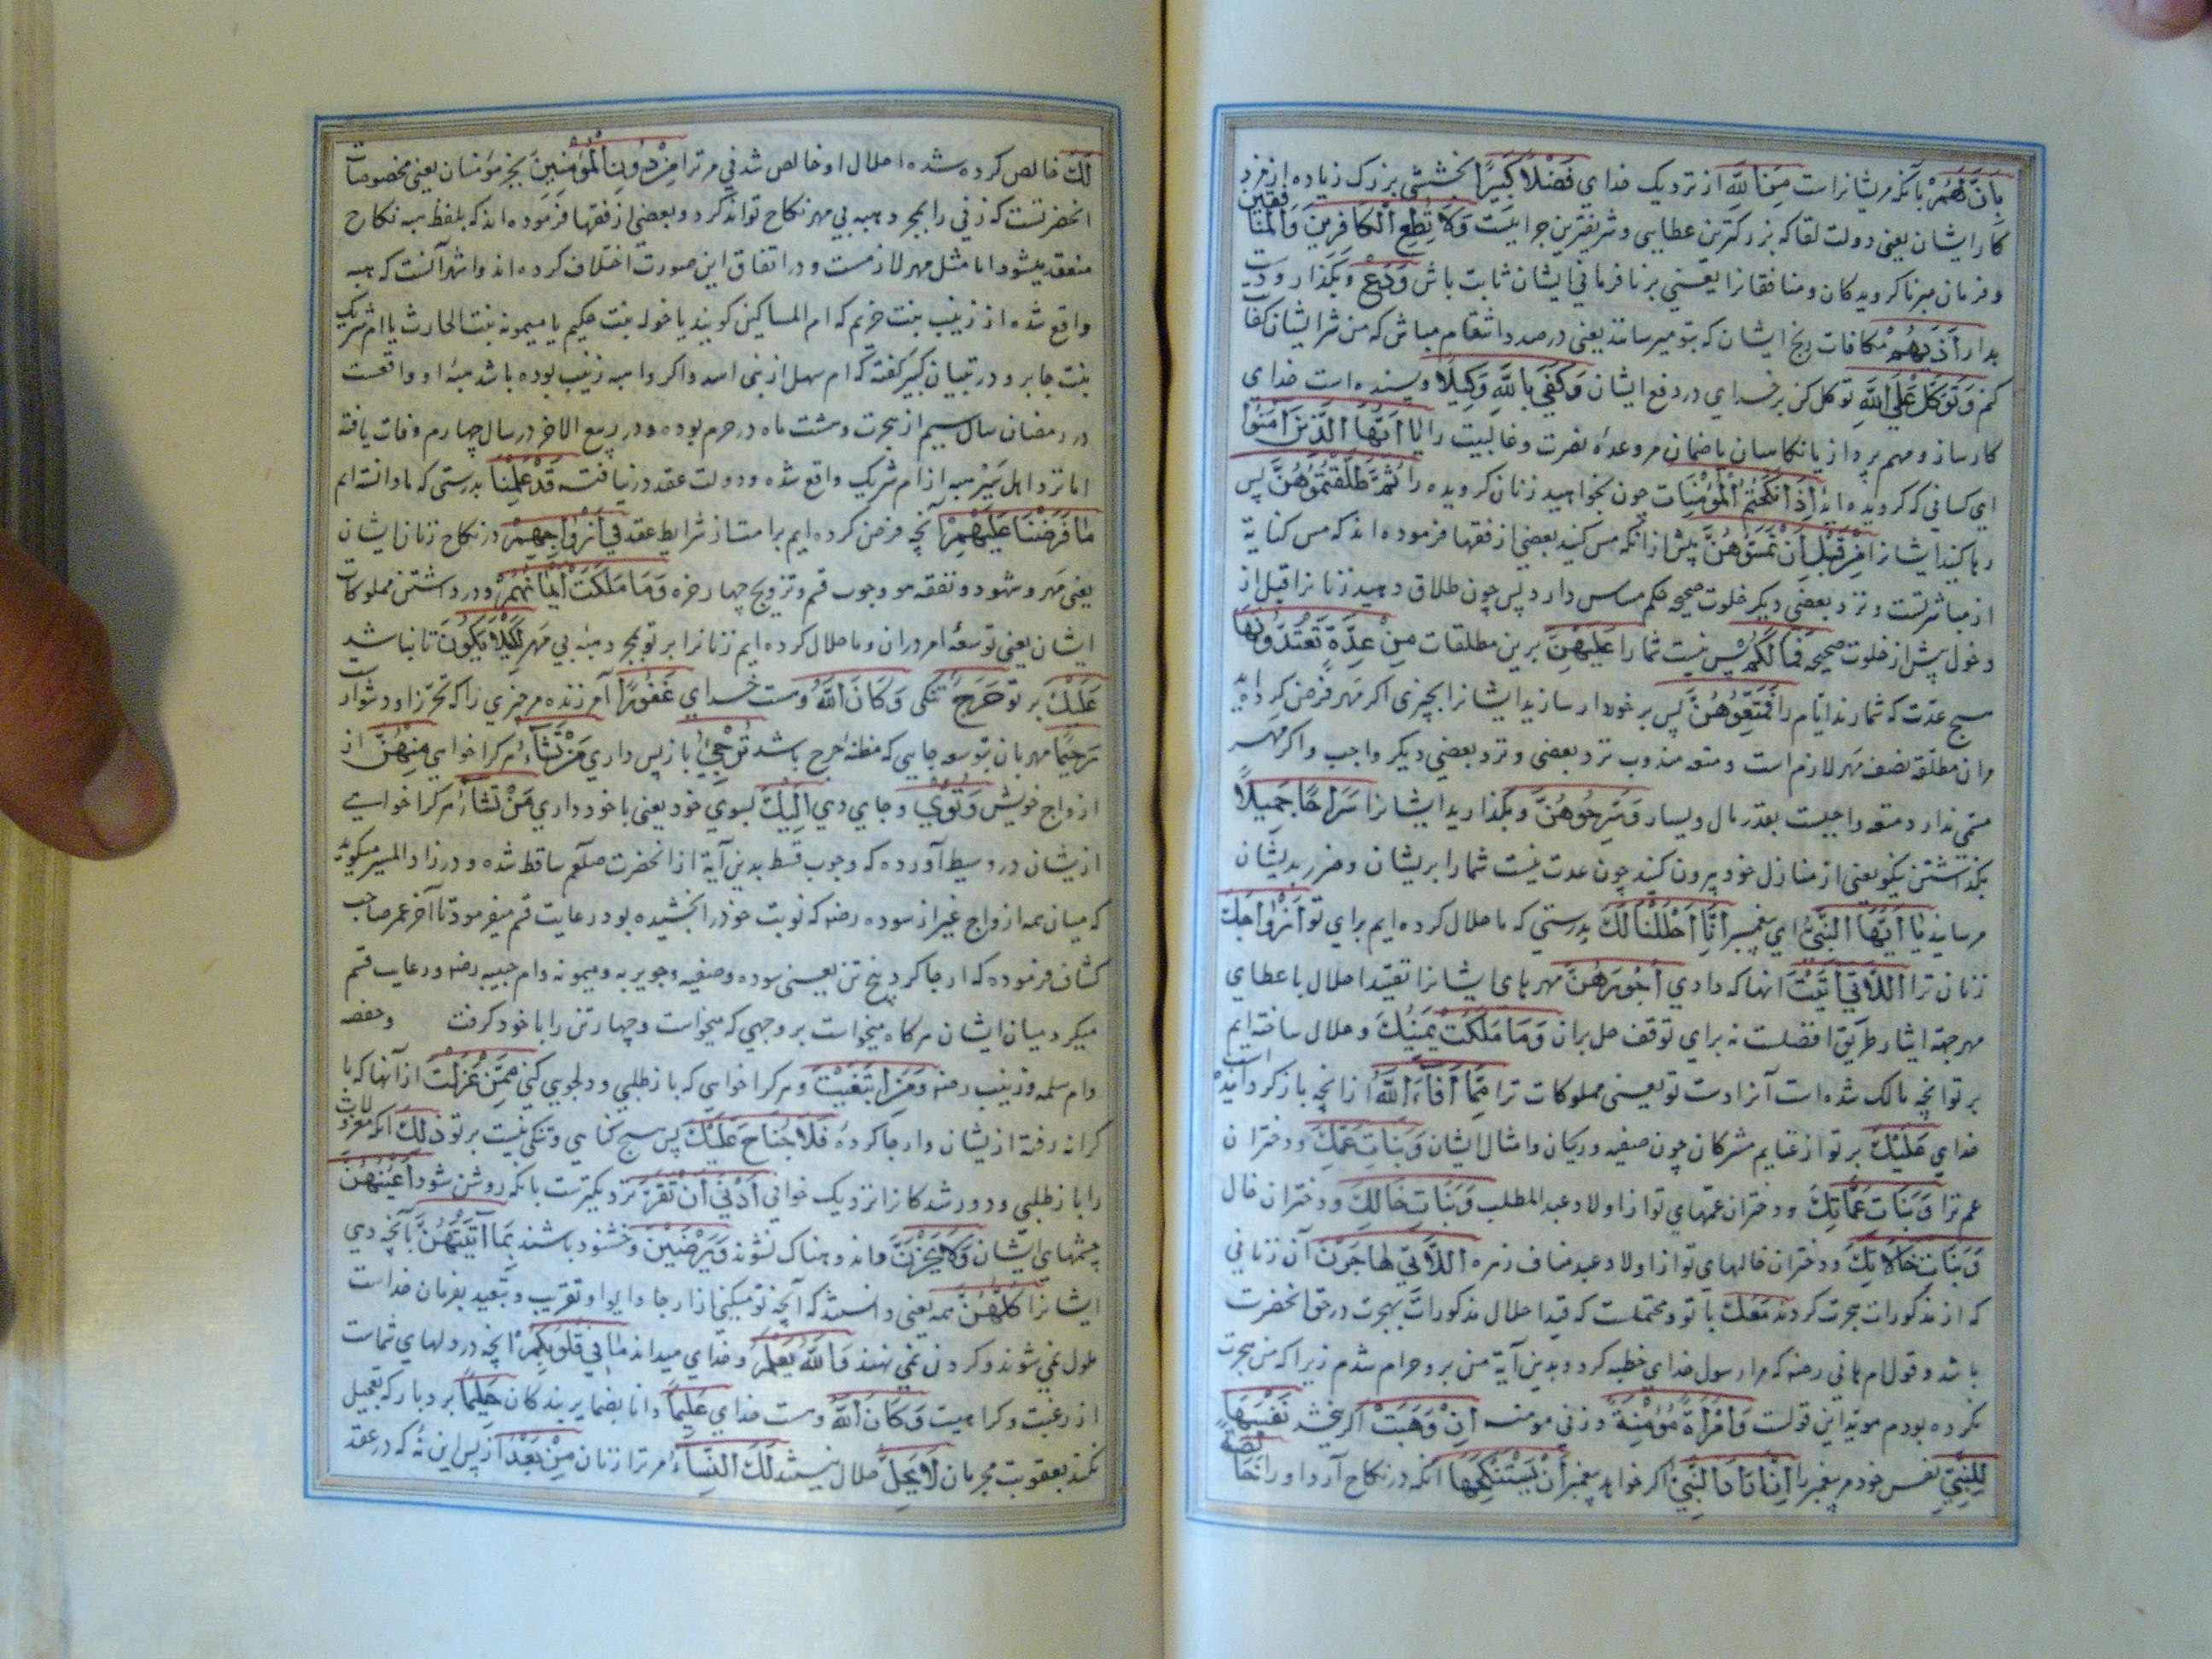 بِاَنَّ لَهُمْ بآنکه مریشانراست مِنَ اللهِ از نزدیک خدای فَضْلاً کَبیراً بخششی بزرک زیاده از مزد
کار ایشان یعنی دولت لقا که بزرکترین عطایی و شریفترین جزاییست وَلَا تُطِعِ الْکَافِرِینَ وَالْمُنَافِقِینَ
و فرمان مبر ناکرویدکان و منافقانرا یعنی بر نافرمانی ایشان ثابت باش وَدَعْ و بکذار و دست
بدار اَذَیٰهُمْ مکافات رنج ایشان که بتو میرسانند یعنی درصدد انتقام مباش که من شر ایشان کفایت
کنم وَتَوَکَّلْ عَلَی اللهِ توکل کن بر خدای در دفع ایشان وَکَفَی بِاللهِ وَکِیلاً و بسنده است خدای
کارساز و مهم پرداز یا نکاهبان یا ضامن مر وعدهٔ نصرت و غالبیت را یَا اَیُّهَا الَّذِینَ اٰمَنُوا
ای کسانی که کرویده اید اِذَا نَکَحْتُمُ الْمُؤْمِنَاتِ چون بخواهید زنان کرویده را ثُمَّ طَلَّقْتُمُوهُنَّ پس
رها کنید ایشانرا مِنْ قَبْلِ اَنْ تَمَسُّوهُنَّ پیش از آنکه مس کنید بعضی از فقها فرموده اند که مس کنایه
از مباشرتست و نزد بعضی دیکر خلوت صحیحه حکم مساس دارد پس چون طلاق دهید زنانرا قبل از
دخول پیش از خلوت صحیحه فَمَا لَکُمْ پس نیست شما را عَلَیْهِنَّ برین مطلقات مِنْ عِدَّةٍ تَعْتَدُّونَهَا
هیچ عدّت که شمارند ایام را فَمَتِّعُوهُنَّ پس برخوردار سازید ایشانرا بچیزی اکر مهر فرض کرده اید
مران مطلقه نصف مهر لازم است و متعه مندوب نزد بعضی و نزد بعضی دیکر واجب و اکر مهر
مسمی ندارد متعه واجبست بقدر مال و یسار وَسَرِّحُوهُنَّ و بکذارید ایشانرا سَرَاحًا جَمِیلاً
بکذاشتن نیکو یعنی از منازل خود بیرون کنید چون عدت نیست شما را بریشان و ضرر بدیشان
مرسانید یَا اَیُّهَا النَّبِیُّ ای پیغمبر اِنَّا اَحْلَلْنَا لَکَ بدرستی که ما حلال کرده ایم برای تو اَزْوَاجَکَ
زنان ترا اللَّاتِی اٰتَیْتَ آنها که دادی اُجُورَهُنَّ مهرهای ایشانرا تقیید احلال باعطای
مهر جهة ایثار طریق افضلست نه برای توقف حل بران وَمَا مَلَکَتْ یَمِینُکَ و حلال ساخته ایم
بر تو انچه مالک شده است آنرا دست تو یعنی مملوکات ترا مِمَّا اَفَاءَ اللهُ ازانچه باز کردانیده است
خدای عَلَیْکَ بر تو از غنایم مشرکان چون صفیه و ریحان و امثال ایشان وَبَنَاتِ عَمِّکَ و دختران
عم ترا وَبَنَاتِ عَمَّاتِکَ و دختران عمّهای تو از اولاد عبد المطلب وَبَنَاتِ خَالِکَ و دختران خال
وَبَنَاتِ خَالَاتِکَ و دختران خالهای تو از اولاد عبد مناف زهره اللَّاتِی هَاجَرْنَ آن زنانی
که از مذکورات هجرت کردند مَعَکَ با تو و محتملست که قید احلال مذکورات بهجرت در حق انحضرت
باشد و قول ام هانی رضه که مرا رسول خدای خطبه کرد و بدین آیة من برو حرام شدم زیرا که من هجرت
نکرده بودم موید این قولست وَامْرَاَةً مُؤْمِنَةً و زنی مومنه اِنْ وَهَبَتْ اکر بخشد نَفْسَهَا
لِلنَّبِیِّ نفس خود مر پیغمبر را اِنْ اَرَادَ النَّبِیُّ اکر خواهد پیغمبر اَنْ یَسْتَنْکِحَهَا انکه در نکاح آرد او را خَالِصَةً
لَکَ خالص کرده شده احلال او خالص شدنی مر ترا مِنْ دُونِ الْمُؤْمِنِینَ بجز مؤمنان یعنی مخصوصات
انحضرتست که زنی را بمجرد هبه بی مهر نکاح تواند کرد و بعضی از فقها فرموده اند که بلفظ هبه نکاح
منعقد میشود اما مثل مهر لازمست و در اتفاق این صورت اختلاف کرده اند و اشهر آنست که هبه
واقع شده از زینب بنت خزیمه که ام المساکین کویند یا خوله بنت حکیم یا میمونه بنت الحارث یا ام شریک
بنت جابر و در تبیان کبیر کفته که ام سهل از بنی اسد و اکر واهبه زینب بوده باشد هبهٔ او واقعست
در رمضان سال سیم از هجرت و هشت ماه در حرم بوده و در ربیع الاخر در سال چهارم وفات یافته
اما نزد اهل سیر هبه از ام شریک واقع شده و دولت عقد در نیافت قَدْ عَلِمْنَا بدرستی که ما دانسته ایم
مَا فَرَضْنَا عَلَیْهِمْ آنچه فرض کرده ایم بر امت از شرایط عقد فِی اَزْوَاجِهِمْ در نکاح زنان ایشان
یعنی مهر و شهود و نفقه مر وجوب قسم و تزویج چهار حره وَمَا مَلَکَتْ اَیْمَانُهُمْ و در داشتن مملوکات
ایشان یعنی توسعهٔ امر دران و ما حلال کرده ایم زنانرا بر تو بمجرد هبه بی مهر لِکَیْلَا یَکُونَ تا نباشد
عَلَیْکَ بر تو حَرَجٌ تنکی وَکَانَ اللهُ و هست خدای غَفُورًا آمرزنده مر چیزی را که تحرز ازو دشوار است
رَحِیمًا مهربان بتوسعه جایی که مظنهٔ حرج باشد تُرْجِی باز پس داری مَنْ تَشَاءُ هر کرا خواهی مِنْهُنَّ از
ازواج خویش وَتُؤْوِی و جای دهی اِلَیْکَ بسوی خود یعنی با خود داری مَنْ تَشَاءُ هر کرا خواهی
ازیشان در وسیط آورده که وجوب قسط بدین آیة از انحضرت صلعم ساقط شده و در زاد المسیر میکوید
که میان همه ازواج غیر از سوده رضه که نوبت خودرا بخشیده بود رعایت قسم میفرمود تا آخر عمر صاحب
کشاف فرموده که ارجا کرد پنج تن یعنی سوده و صفیه و جویریه و میمونه و ام حبیبه رضه و رعایت قسم
میکرد میان ایشان هر کاه میخواست بر وجهی که میخواست و چهار تن را با خود کرفت و حفصه
و ام سلمه و زینب رضه وَمَنِ ابْتَغَیْتَ و هر کرا خواهی که باز طلبی و دلجویی کنی مِمَّنْ عَزَلْتَ از آنها که با
کرانه رفتهٔ ازیشان و ارجا کردهٔ فَلَا جُنَاحَ عَلَیْکَ پس هیچ کناهی و تنکی نیست بر تو ذٰلِکَ انکه معزولات
را باز طلبی و دور شدکانرا نزدیک خوانی اَدْنٰی اَنْ تَقَرَّ نزدیکترست بانکه روشن شود اَعْیُنُهُنَّ
چشمهای ایشان وَلَا یَحْزَنَّ و اندوهناک نشوند وَیَرْضَیْنَ و خشنود باشند بِمَا اٰتَیْتَهُنَّ بآنچه دهی
ایشانرا کُلُّهُنَّ همه یعنی دانستند که آنچه تو میکنی از ارجا و ایوا و تقریب و تبعید بفرمان خداست
ملول نمی شوند و کردن می نهند وَاللهُ یَعْلَمُ و خدای میداند مَا فِی قُلُوبِکُمْ انچه در دلهای شماست
از رغبت و کراهیت وَکَانَ اللهُ و هست خدای عَلِیمًا دانا بضمایر بندکان حَلِیمًا بردبار که تعجیل
نکند بعقوبت مجرمان لَا یَحِلُّ حلال نیستند لَکَ النِّسَاءُ مر ترا زنان مِنْ بَعْدُ از پس این نه که در عقد